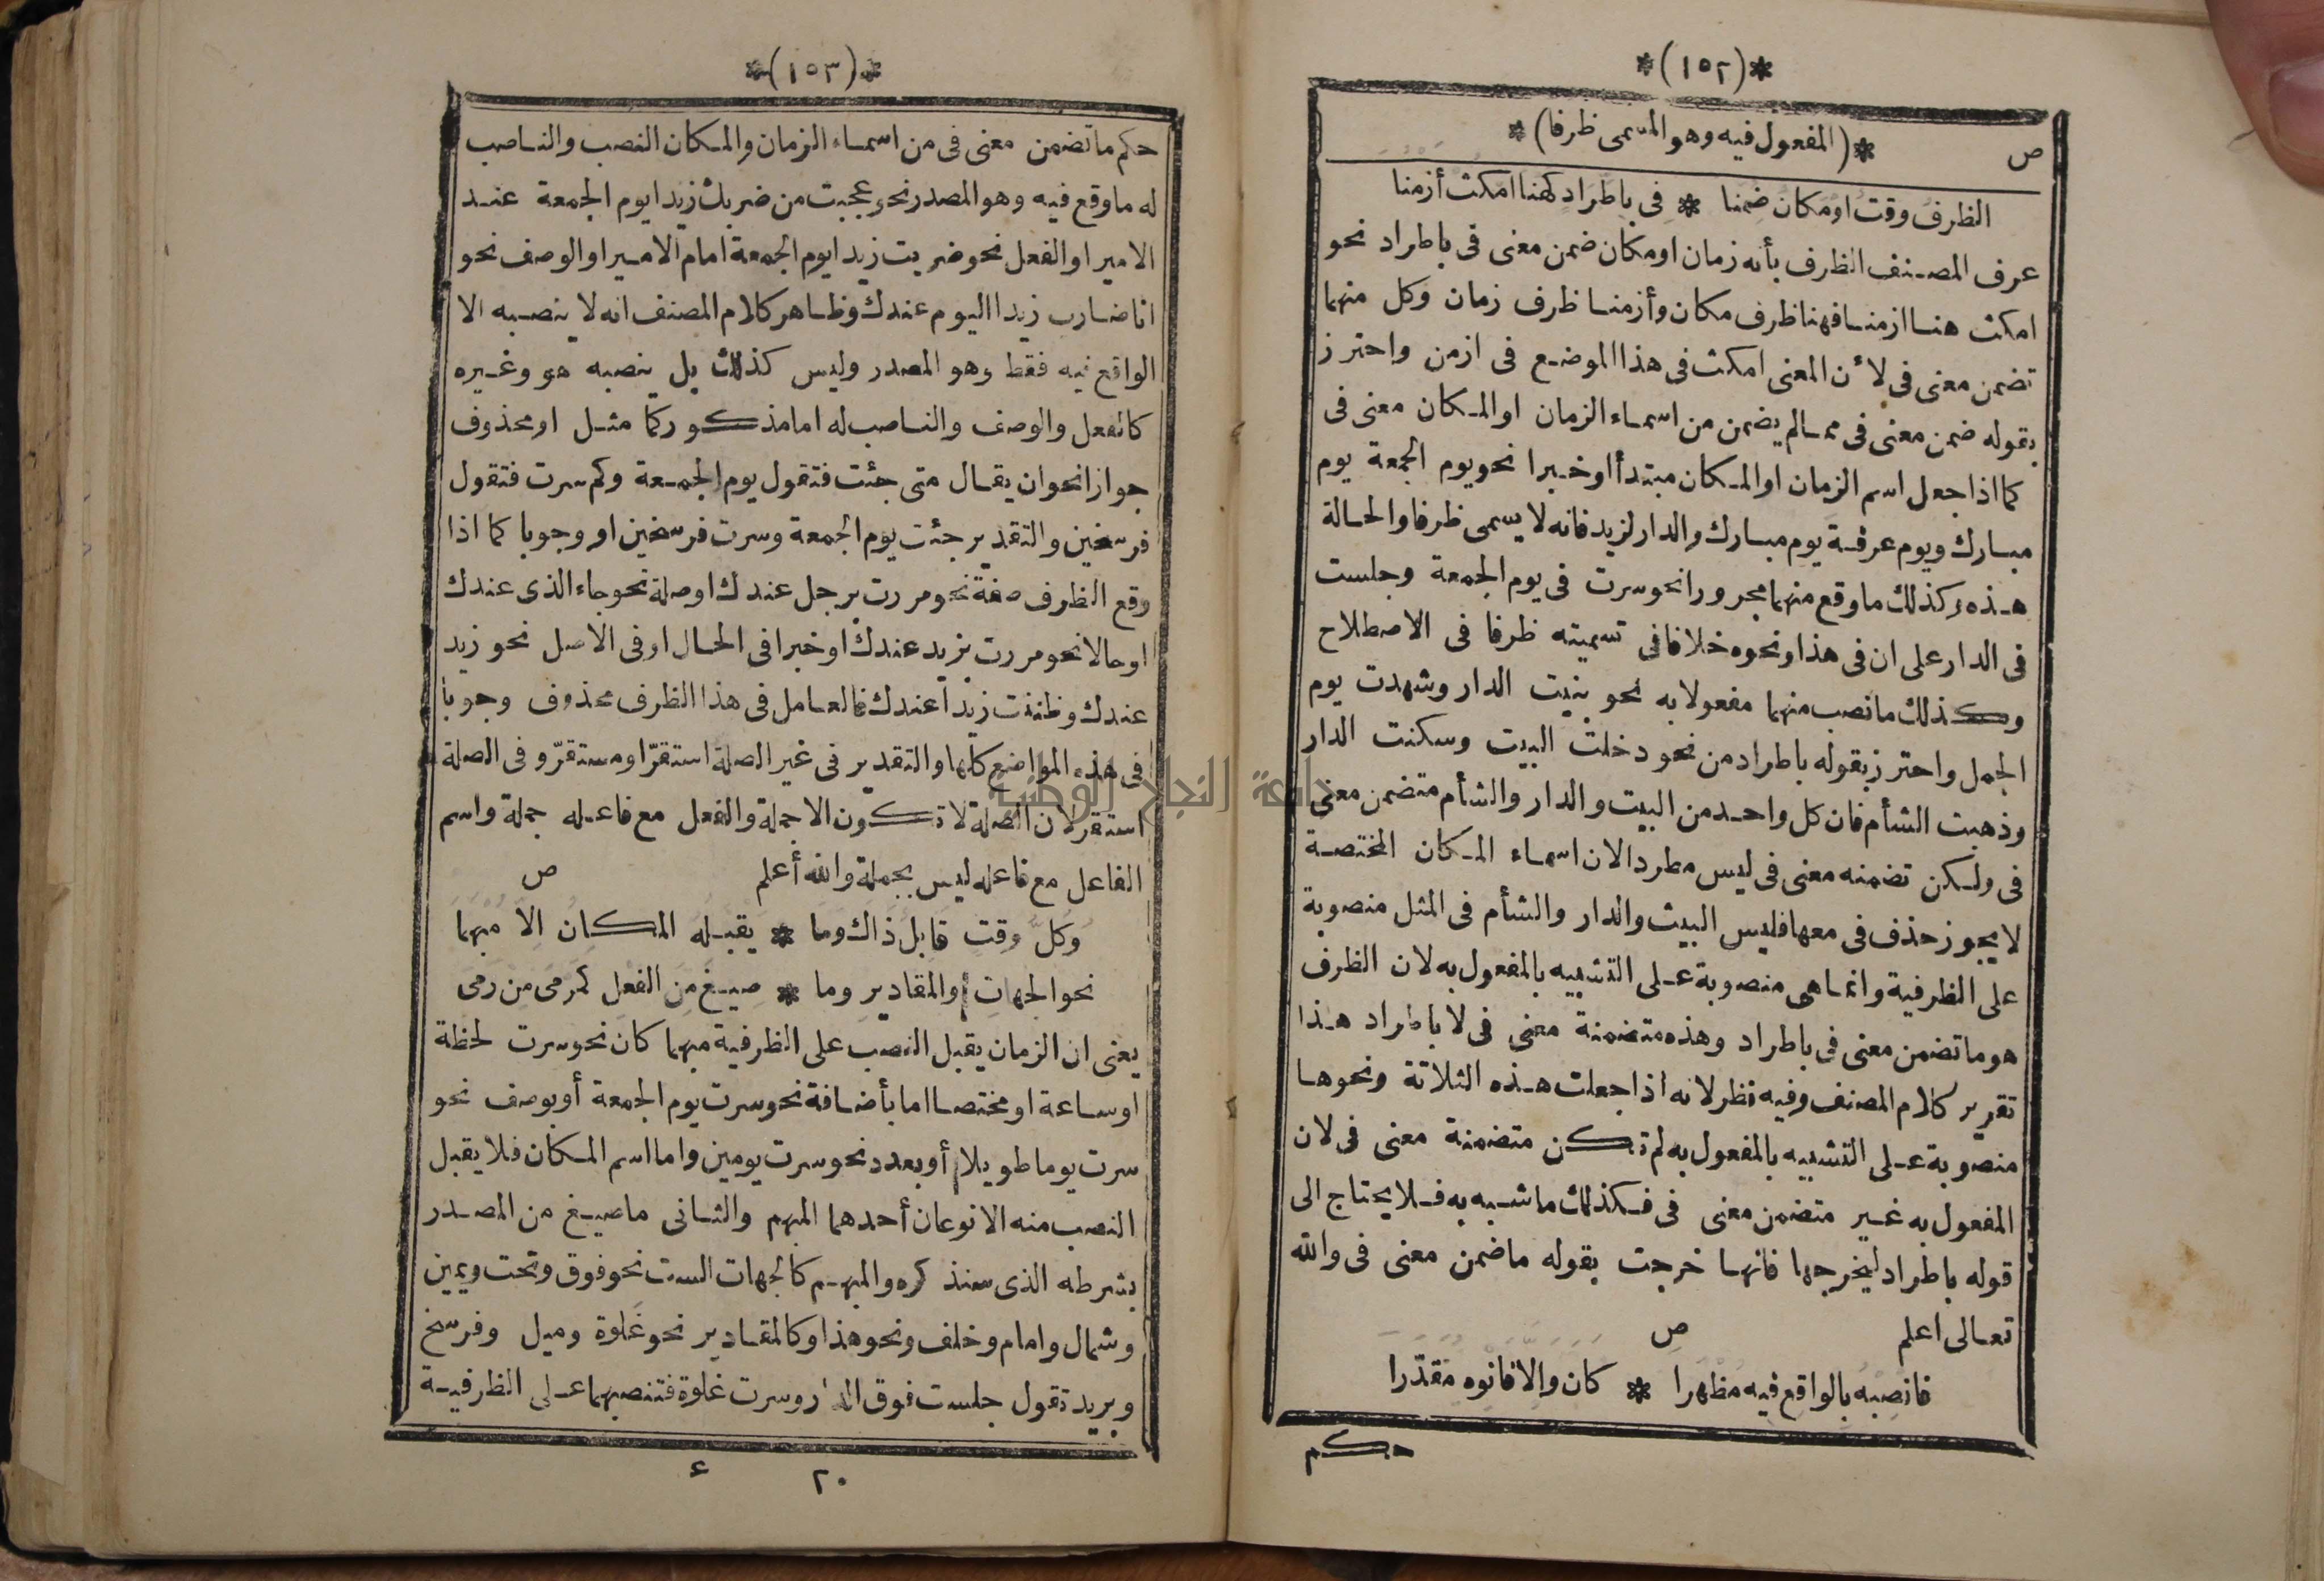 *(١٥٢)*
ص *(المفعول فيه وهو المسمى ظرفا)*
الظرف وقت او مكان ضمنا * فى باطراد كهنا امكث أزمنا
عرف المصنف الظرف بأنه زمان او مكان ضمن معنى فى باطراد نحو
امكث هنا ازمنا فهنا ظرف مكان وأزمنا ظرف زمان وكل منهما
تضمن معنى فى لأن المعنى امكث فى هذا الموضع فى ازمن واحترز
بقوله ضمن معنى فى مما لم يضمن من اسماء الزمان او المكان معنى فى
كما اذا جعل اسم الزمان او المكان مبتدأ او خبرا نحو يوم الجمعة يوم
مبارك ويوم عرفة يوم مبارك والدار لزيد فانه لا يسمى ظرفا والحالة
هذه وكذلك ما وقع منهما مجرورا نحو سرت فى يوم الجمعة وجلست
فى الدار على ان فى هذا ونحوه خلافا فى تسميته ظرفا فى الاصطلاح
وكذلك ما نصب منهما مفعولا به نحو بنيت الدار وشهدت يوم
الجمل واحترز بقوله باطراد من نحو دخلت البيت وسكنت الدار
وذهبت الشأم فان كل واحد من البيت والدار والشأم متضمن معنى
فى ولكن تضمنه معنى فى ليس مطردا لان اسماء المكان المختصة
لا يجوز حذف فى معها فليس البيت والدار والشأم فى المثل منصوبة
على الظرفية وانما هى منصوبة على التشبيه بالمفعول به لان الظرف
هو ما تضمن معنى فى باطراد وهذه متضمنة معنى فى لا باطراد هذا
تقرير كلام المصنف وفيه نظر لانه اذا جعلت هذه الثلاثة ونحوها
منصوبة على التشبيه بالمفعول به لم تكن متضمنة معنى فى لان
المفعول به غير متضمن معنى فى فكذلك ما شبه به فلا يحتاج الى
قوله باطراد ليخرجها فانها خرجت بقوله ما ضمن معنى فى والله
تعالى اعلم ص
فانصبه بالواقع فيه مظهرا * كان والا فانوه مقدّرا
حكم
*(١٥٣)*
حكم ما تضمن معنى فى من اسماء الزمان والمكان النصب والناصب
له ما وقع فيه وهو المصدر نحو عجبت من ضربك زيدا يوم الجمعة عند
الامير او الفعل نحو ضربت زيدا يوم الجمعة امام الامير او الوصف نحو
انا ضارب زيدا اليوم عندك وظاهر كلام المصنف انه لا ينصبه الا
الواقع فيه فقط وهو المصدر وليس كذلك بل ينصبه هو وغيره
كالفعل والوصف والناصب له اما مذكور كما مثل او محذوف
جوازا نحو ان يقال متى جئت فتقول يوم الجمعة وكم سرت فتقول
فرسخين والتقدير جئت يوم الجمعة وسرت فرسخين او وجوبا كما اذا
وقع الظرف صفة نحو مررت برجل عندك او صلة نحو جاء الذى عندك
او حالا نحو مررت بزيد عندك او خبرا فى الحال او فى الاصل نحو زيد
عندك وظننت زيدا عندك فالعامل فى هذا الظرف محذوف وجوبا
فى هذه المواضع كلها والتقدير فى غير الصلة استقرّ او مستقرّ وفى الصلة
استقر لان الصلة لا تكون الا جملة والفعل مع فاعله جملة واسم
الفاعل مع فاعله ليس بجملة والله أعلم ص
وَكلُّ وقتٍ قابل ذَاك وما * يقبله المكان الاّ مبهما
نحو الجهات والمقادير وما * صيغ من الفعل كمرمى من رمى
يعنى ان الزمان يقبل النصب على الظرفية مبهما كان نحو سرت لحظة
او ساعة او مختصا اما بأضافة نحو سرت يوم الجمعة أو بوصف نحو
سرت يوما طويلا أو بعدد نحو سرت يومين واما اسم المكان فلا يقبل
النصب منه الا نوعان أحدهما المبهم والثانى ما صيغ من المصدر
بشرطه الذى سنذكره والمبهم كالجهات الست نحو فوق وتحت ويمين
وشمال وامام وخلف ونحو هذا وكالمقادير نحو غلوة وميل وفرسخ
وبريد تقول جلست فوق الدار وسرت غلوة فتنصبهما على الظرفية
٢٠ ء
جامعة النجاح الوطنية